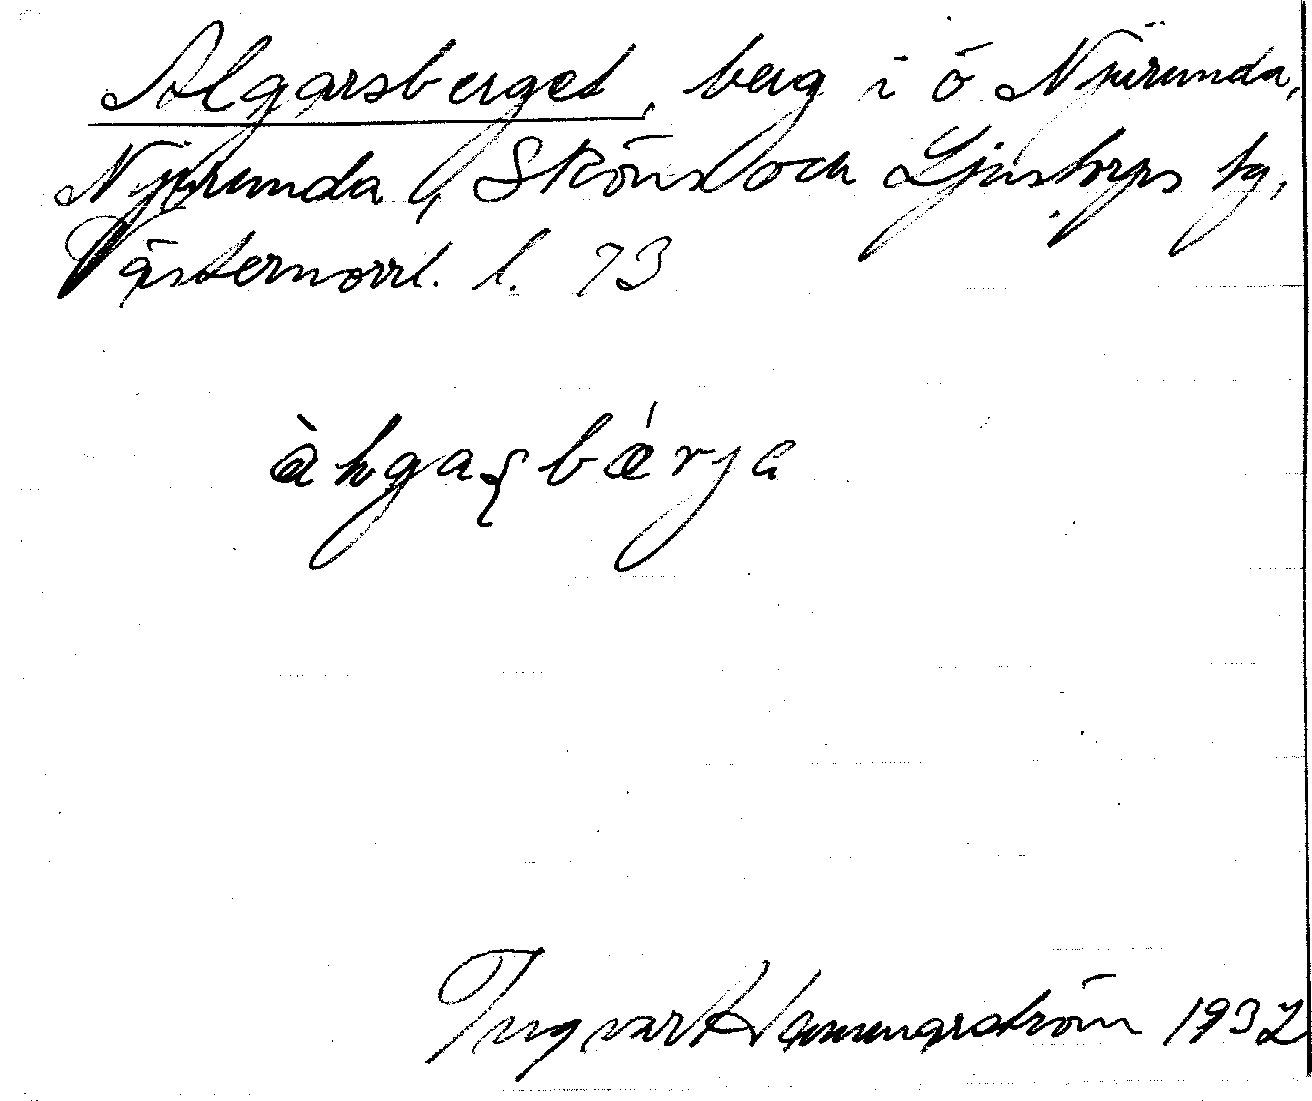 Algarsberget, berg i ö Njurunda,
Njurunda l, Sköns och Ljustorps tg,
Västernorrl. l. 73
àhgaʂbǽrja
Ingvar Hammarström 1932